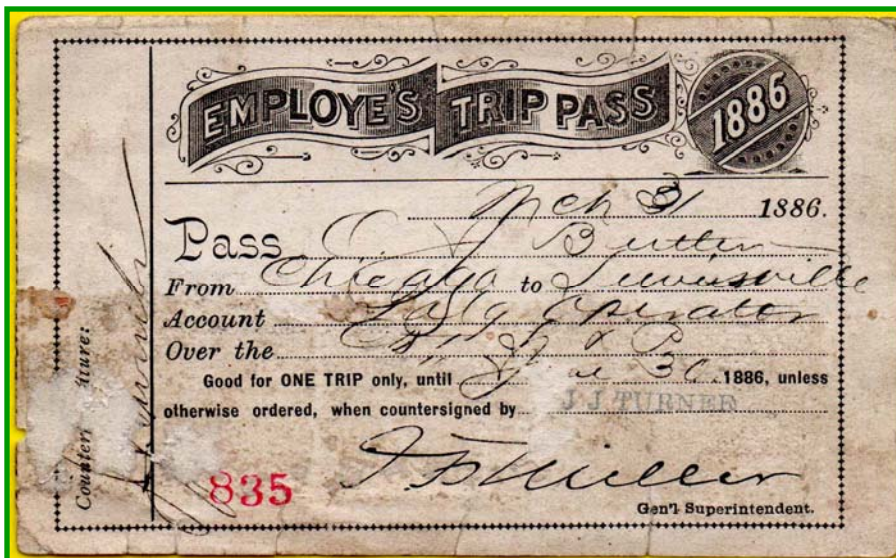 EMPLOYE'S TRIP PASS 1886
Mch 31 1886.
Pass E J Butler
From Chicago to Lewisville
Account Operator
Over the
Good for ONE TRIP only, until 30 1886, unless
otherwise ordered, when countersigned by J J TURNER
835
Miller
Gen'l Superintendent.